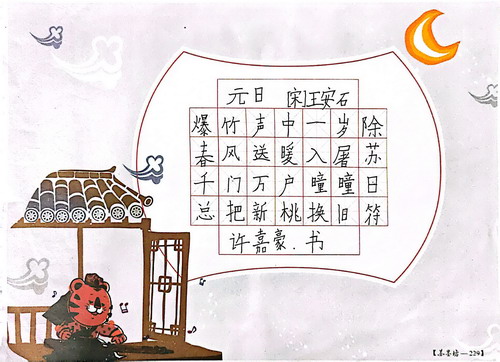 元日 宋王安石
爆竹声中一岁除
春风送暖入屠苏
千门万户曈曈日
总把新桃换旧符
许嘉豪.书
【墨香坊—229】